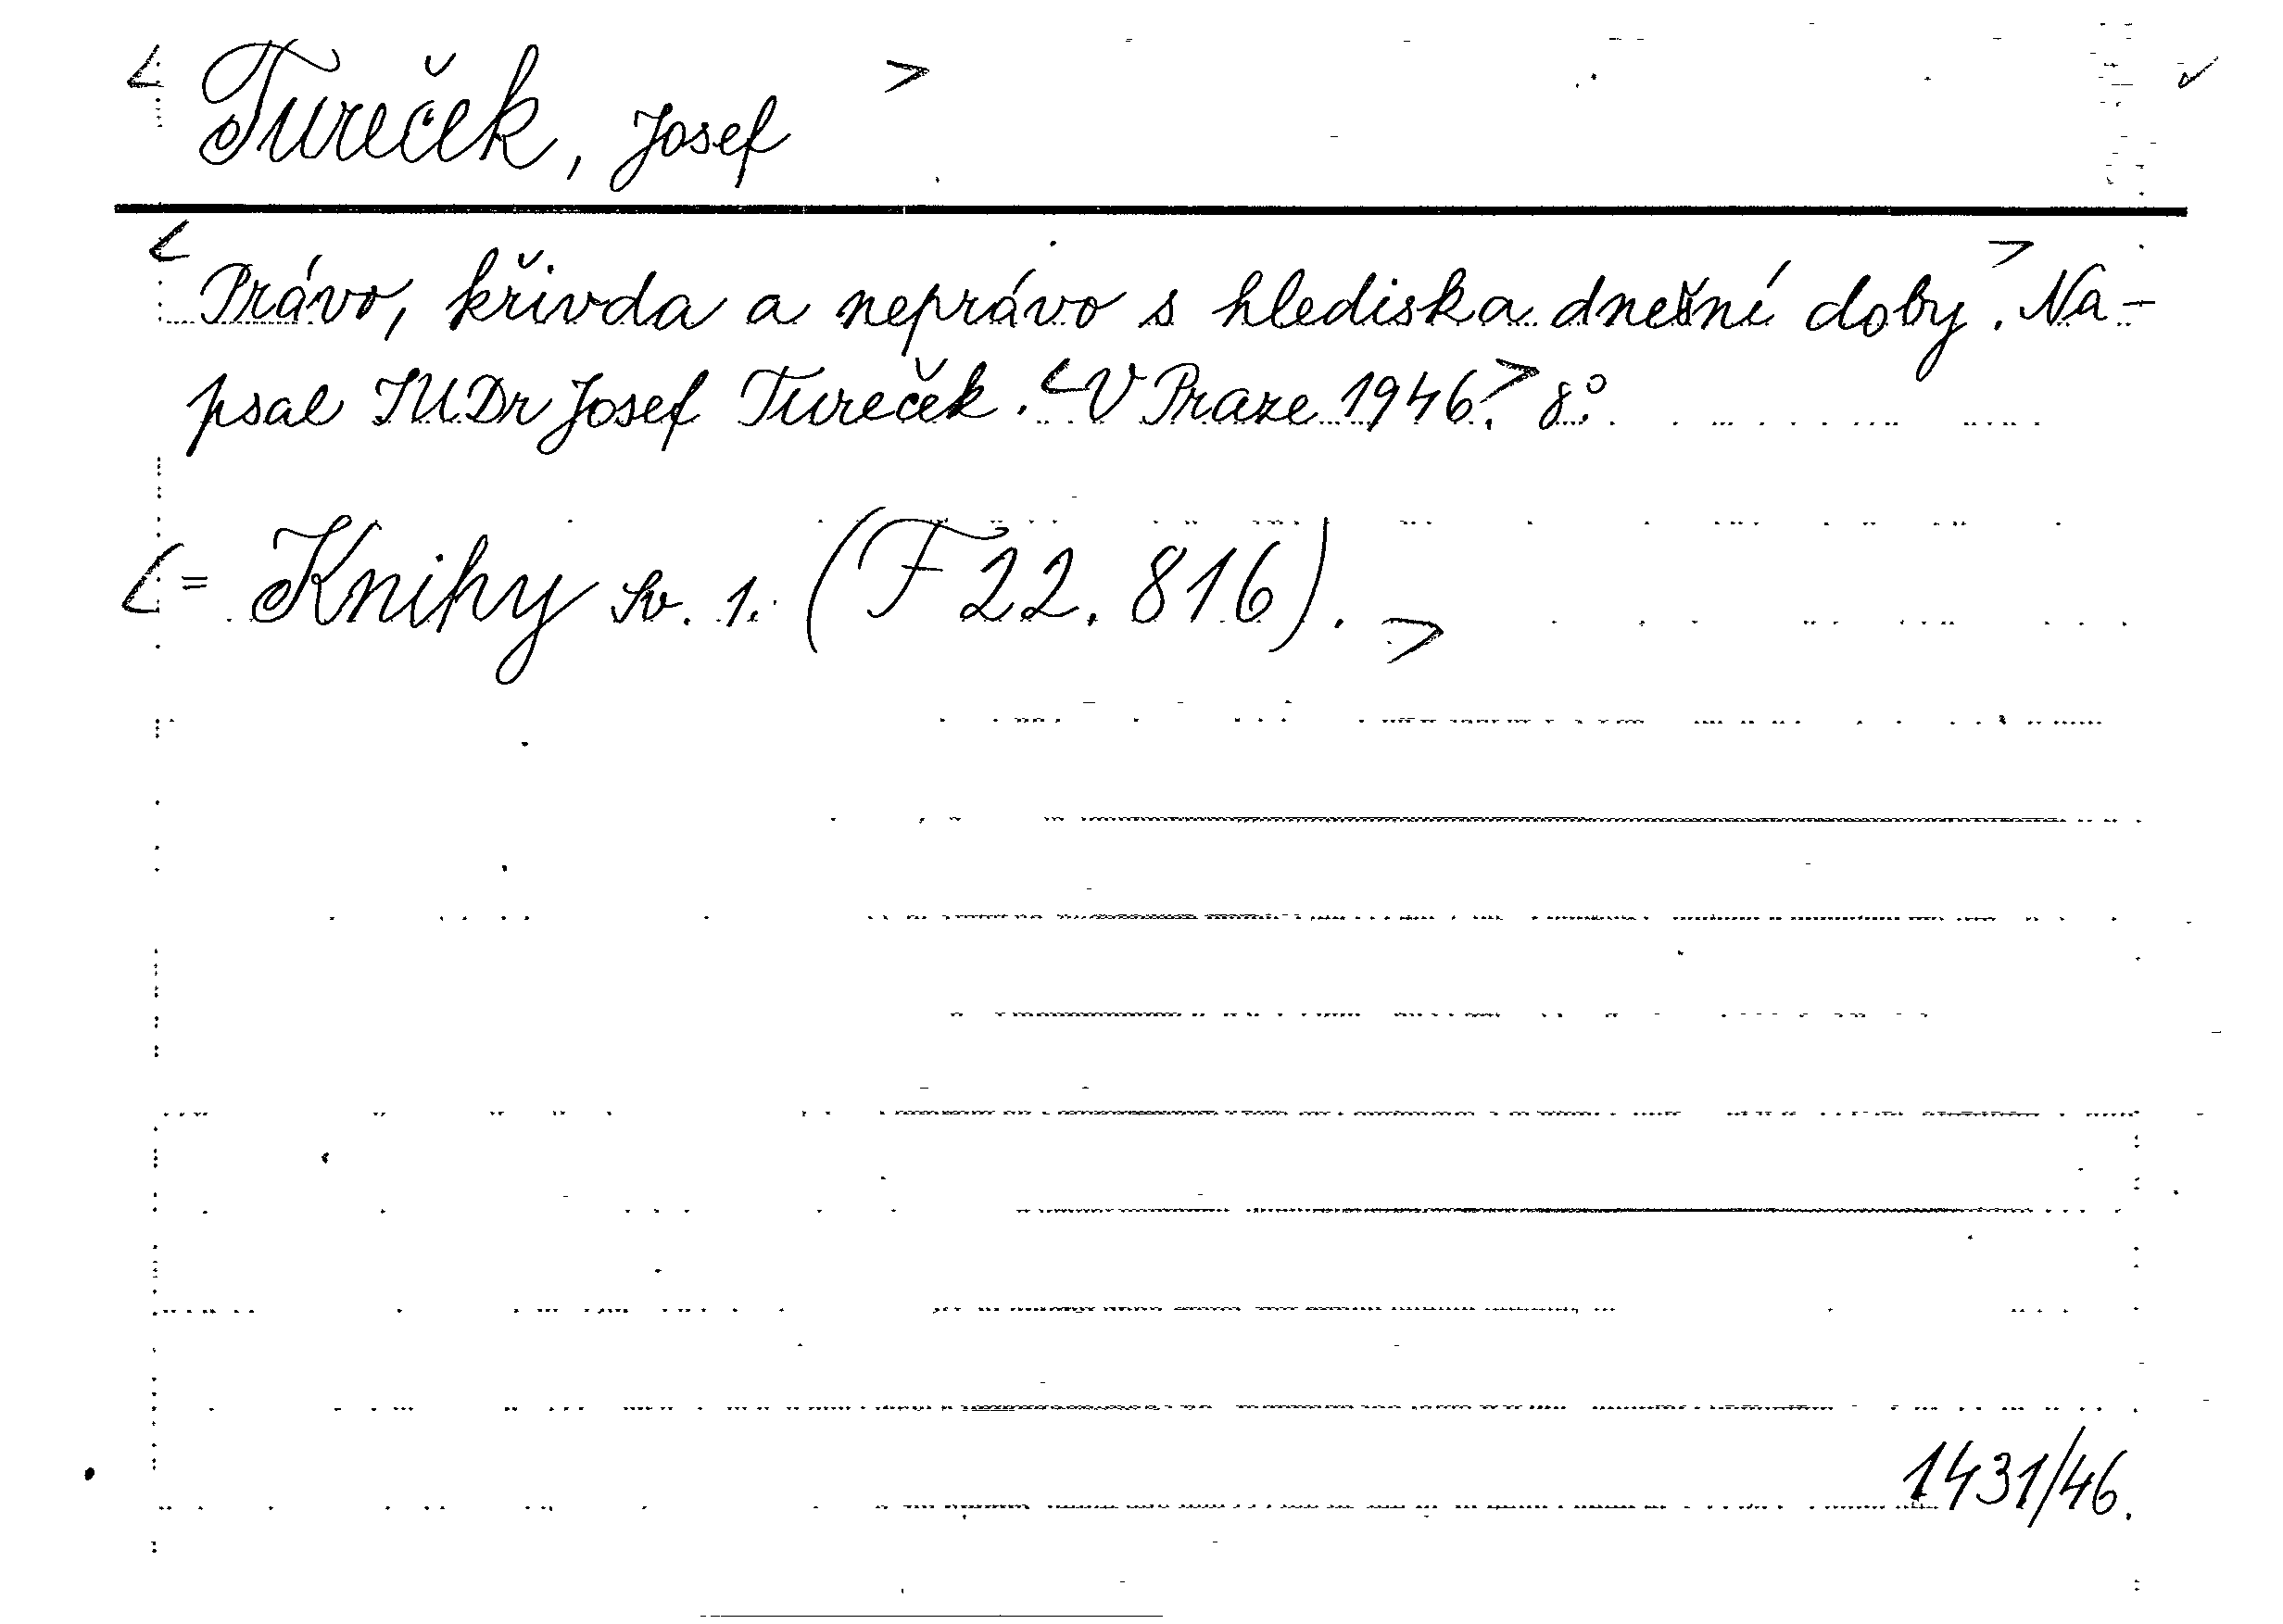 < Tureček, Josef >
< Právo, křivda a neprávo s hlediska dnešní doby. > Na-
psal JUDr Josef Tureček. < V Praze 1946. > 8°.
< = Knihy sv. 1. (F 22. 816). >
1431/46.